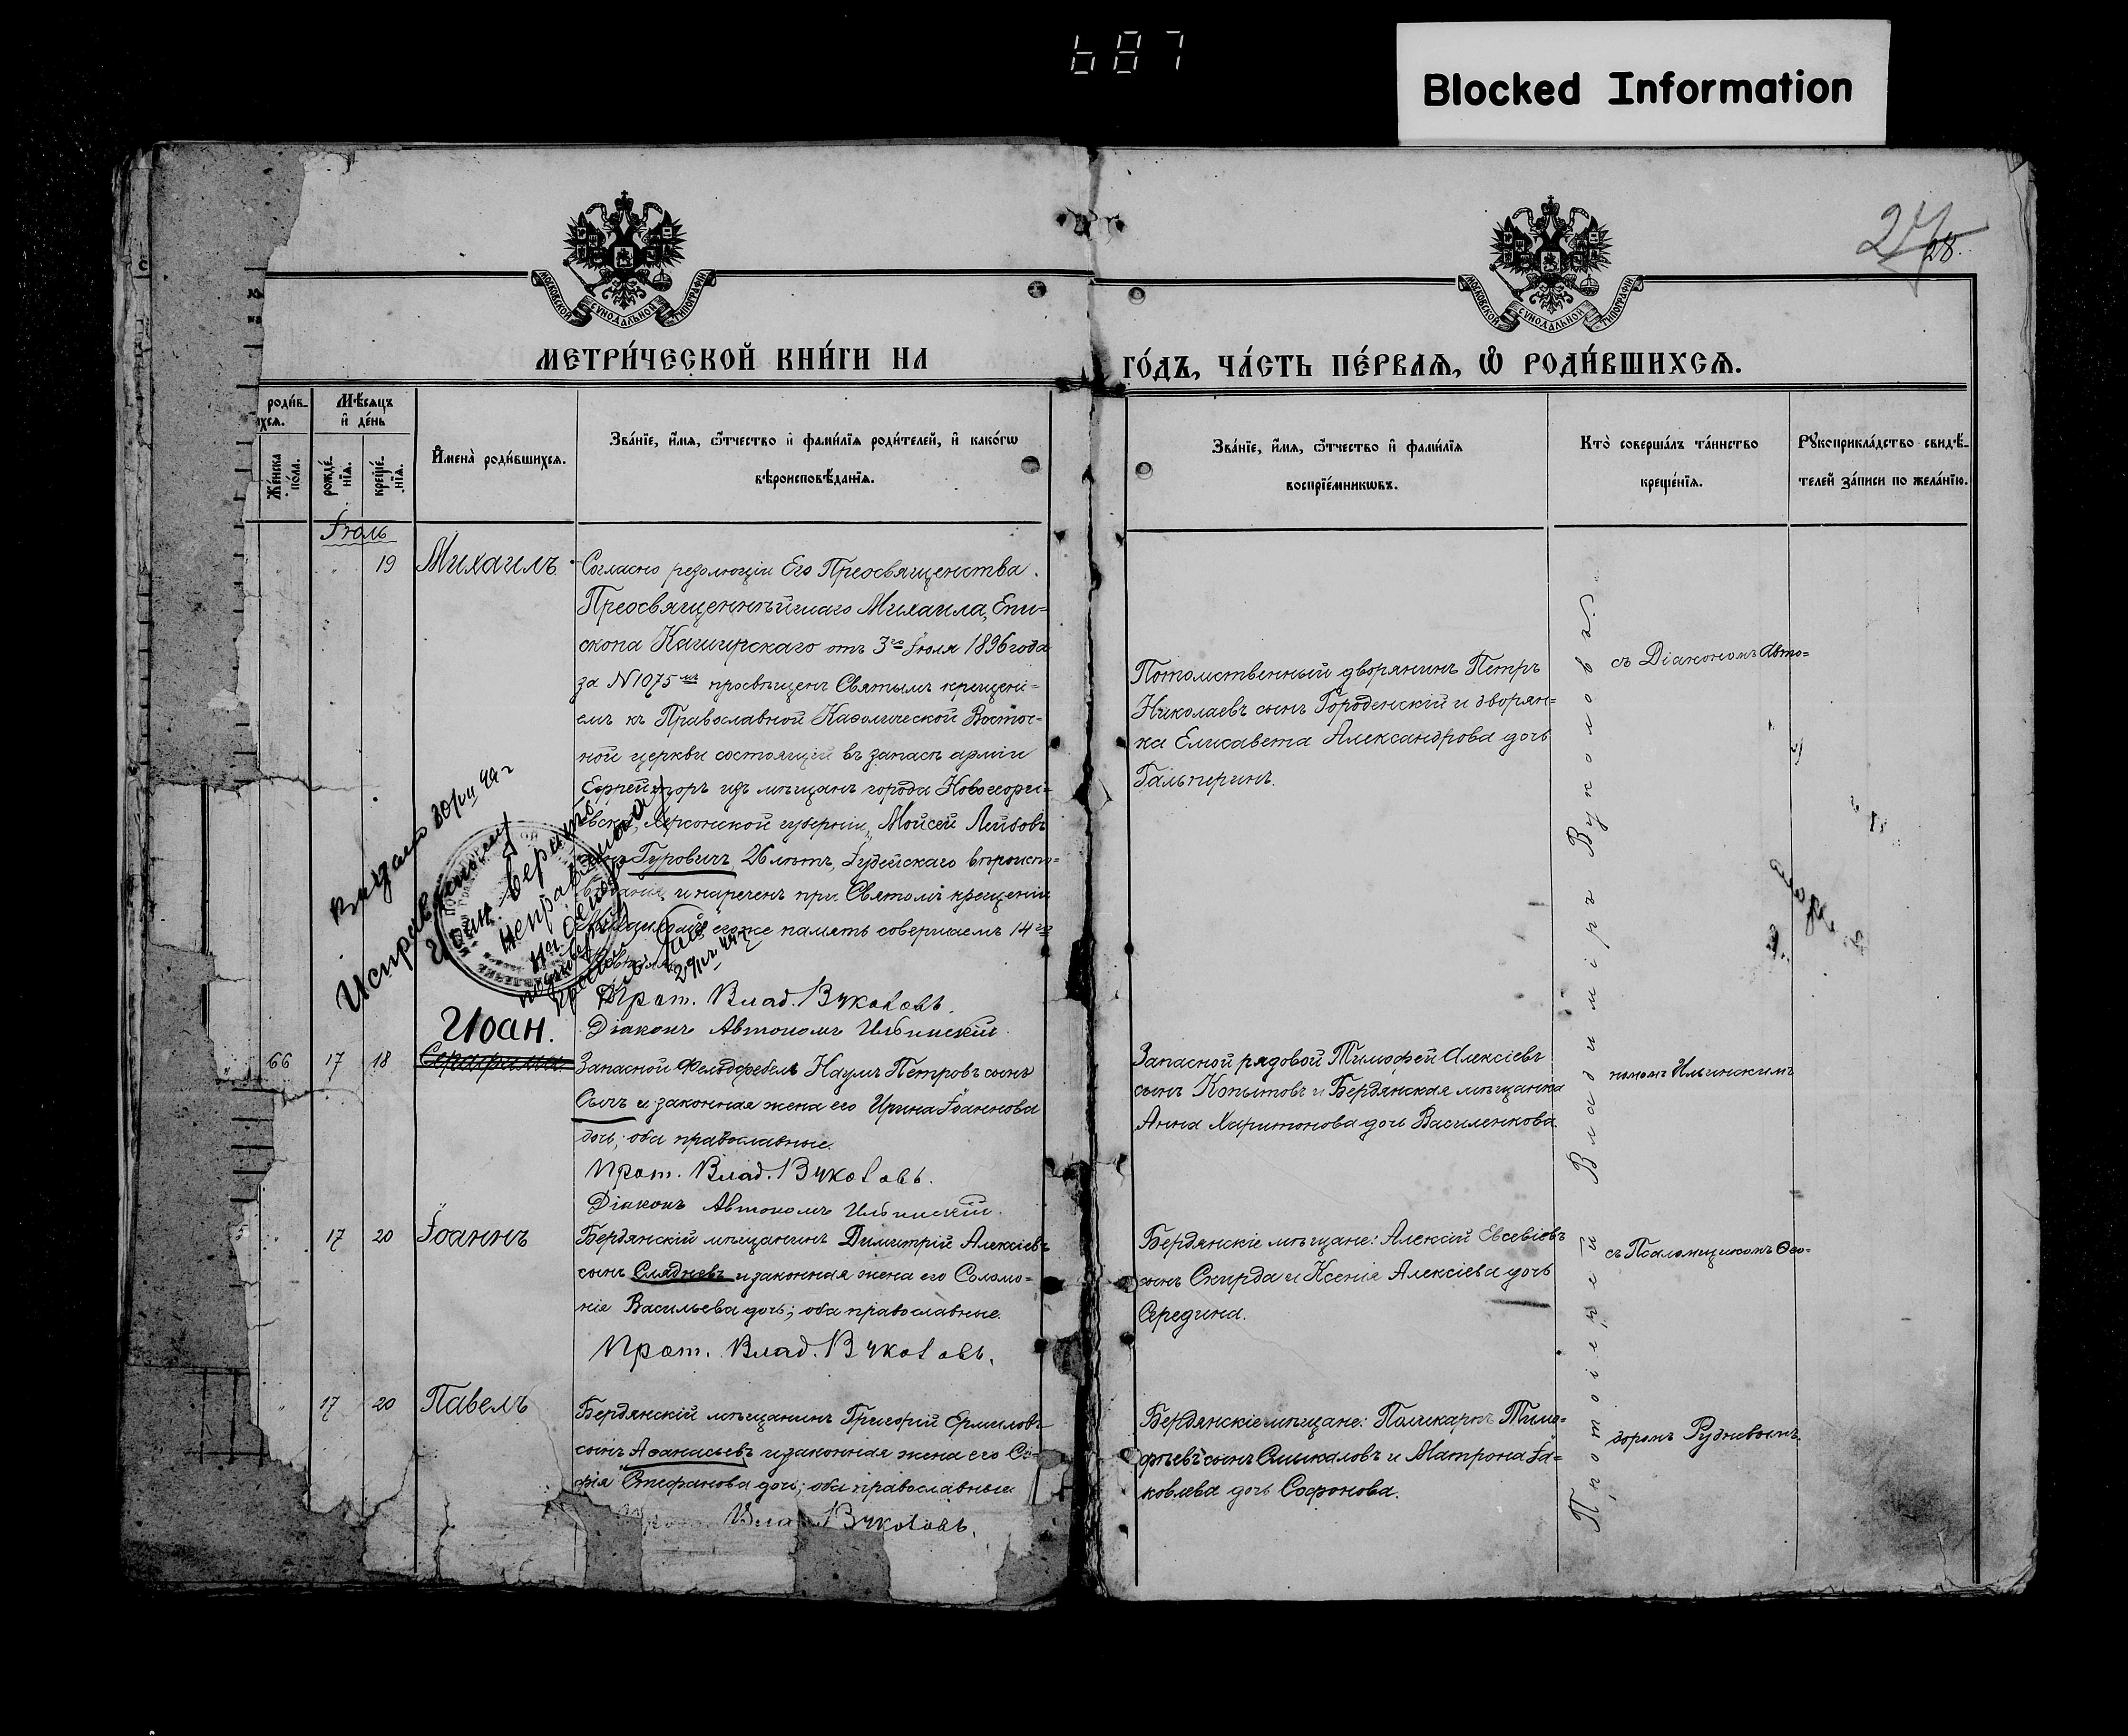 687
Blocked Information
27
28.
МОСКОВСКОЙ СѴНОДАЛЬНОЙ ТИПОГРАФІИ
МОСКОВСКОЙ СѴНОДАЛЬНОЙ ТИПОГРАФІИ
МЕТРИ́ЧЕСКОЙ КНИ́ГИ НА
ГО́ДЪ, ЧА́СТЬ ПЕ́РВАѦ, Ѡ҆ РОДИ́ВШИХСѦ.
роди́в-
ихсѧ.
Мѣ́сѧцъ
и҆ де́нь
Же́нска
по́ла.
рожде́-
нїѧ.
креще́-
нїѧ.
И҆мена̀ роди́вшихсѧ.
Зва́нїе, и҆́мѧ, ѻ҆́тчество и҆ фами́лїѧ роди́телей, и҆ како́гѡ
вѣроисповѣ́данїѧ.
Зва́нїе, и҆́мѧ, ѻ҆́тчество и҆ фами́лїѧ
воспрїе́мникѡвъ.
Кто̀ соверша́лъ та́инство
креще́нїѧ.
Рꙋкоприкла́дство свидѣ́-
телей за́писи по жела́нїю.
Іюль
19 Михаилъ
Согласно резолюціи Его Преосвященства
Преосвященнѣйшаго Михаила, Епи-
скопа Каширскаго отъ 3го Іюля 1896 года
за №1075мъ просвѣщенъ Святымъ крещені-
емъ къ Православной Каѳолической Восточ-
ной церкви состоящій въ запасѣ арміи
Ефрейторъ изъ мѣщанъ города Новогеоргі-
евска, Херсонской губерніи, Мойсей Лейбовъ
сынъ Гуровичъ, 26 лѣтъ, Іудейскаго вѣроиспо-
вѣданія и нареченъ при Святомъ крещеніи
егоже память совершаемъ 14го
Прот. Влад. Вуколовъ.
Діаконъ Автономъ Ильинскій.
Потомственный дворянинъ Петръ
Николаевъ сынъ Городенскій и дворян-
ка Елисавета Александрова дочь
Гальперинъ.
съ Діакономъ Авто-
Протоіерей Владиміръ Вуколовъ
Выдано 30/VII 44 г
Исправленному
Иоан. верить
неправ
29/VII 44 г
Иоан.
66 17 18 Серафима
Запасной Фельдфебель Наумъ Петровъ сынъ
Сычъ и законная жена его Ирина Іоаннова
дочь; оба православные.
Прот. Влад. Вуколовъ.
Діаконъ Автономъ Ильинскій.
Запасной рядовой Тимофей Алексіевъ
сынъ Копытовъ и Бердянская мѣщанка
Анна Харитонова дочь Василенкова.
номомъ Ильинскимъ
17 20 Іоаннъ
Бердянскій мѣщанинъ Димитрій Алексіевъ
сынъ Слядневъ и законная жена его Соломо-
нія Васильева дочь; оба православные.
Прот. Влад. Вуколовъ.
Бердянскіе мѣщане: Алексій Евсевіевъ
сынъ Скирда и Ксенія Алексіева дочь
Середина.
съ Псаломщикомъ Ѳео-
17 20 Павелъ
Бердянскій мѣщанинъ Григорій Ермиловъ
сынъ Аѳанасьевъ и законная жена его Со-
фія Стефанова дочь; оба православные.
Прот. Влад. Вуколовъ.
Бердянскіе мѣщане: Поликарпъ Тимо-
фѣевъ сынъ Смыкаловъ и Матрона Іа-
ковлева дочь Софонова.
доромъ Рудневымъ.